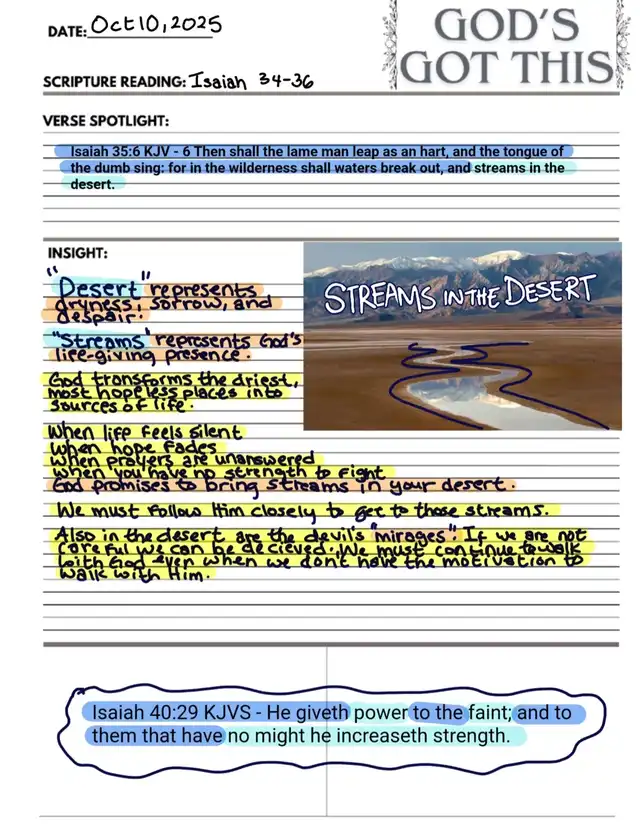 DATE: Oct 10, 2025
GOD'S
GOT THIS
SCRIPTURE READING: Isaiah 34-36
VERSE SPOTLIGHT:
Isaiah 35:6 KJV - 6 Then shall the lame man leap as an hart, and the tongue of
the dumb sing: for in the wilderness shall waters break out, and streams in the
desert.
INSIGHT:
"Desert" represents
dryness, sorrow, and
despair.
"Streams" represents God's
life-giving presence.
God transforms the driest,
most hopeless places into
sources of life.
When life feels silent
When hope fades
When prayers are unanswered
When you have no strength to fight
God promises to bring streams in your desert.
We must follow Him closely to get to those streams.
Also in the desert are the devil's "mirages". If we are not
careful we can be decieved. We must continue to walk
with God even when we don't have the motivation to
walk with Him.
STREAMS IN THE DESERT
Isaiah 40:29 KJVS - He giveth power to the faint; and to
them that have no might he increaseth strength.